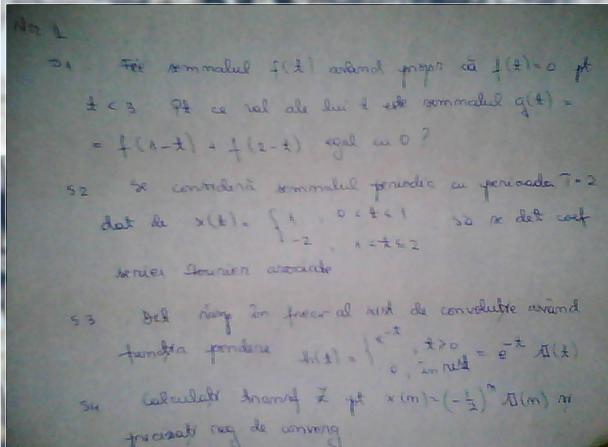 Nr 1
S1 Fie semnalul f(t) având propr că f(t)=0 pt
t < 3 Pt ce val ale lui t este semnalul g(t) =
= f(1-t) + f(2-t) egal cu 0?
S2 Se consideră semnalul periodic cu perioada T=2
dat de x(t) = { 1 , 0 < t < 1 să se det coef
-2 , 1 < t < 2
seriei Fourier asociate
S3 Det răsp în frecv al sist de convoluție având
funcția pondere h(t) = { e^-t , t>0 = e^-t (t)
0 , în rest
S4 Calculați transf Z pt x(n)=(-1/2)^n (n) și
precizați reg de converg